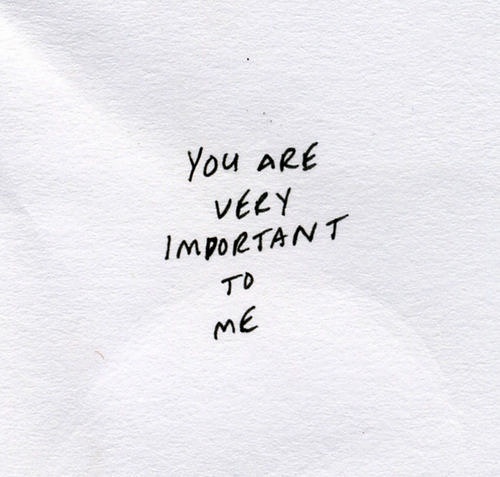 YOU ARE
VERY
IMPORTANT
TO
ME